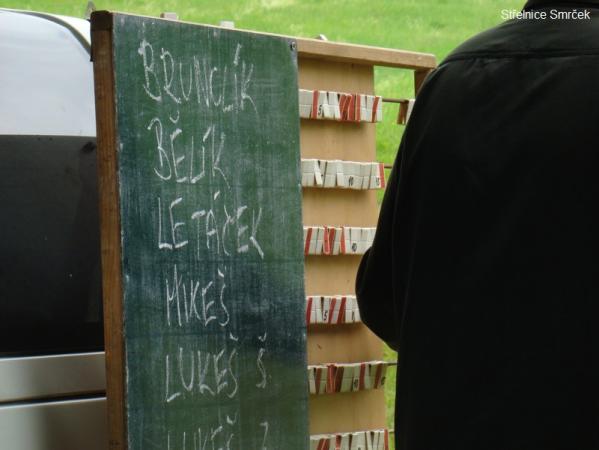 Střelnice Smrček
BRUNCLÍK
BĚLÍK
LETÁČEK
MIKEŠ
LUKEŠ Š
LUKEŠ